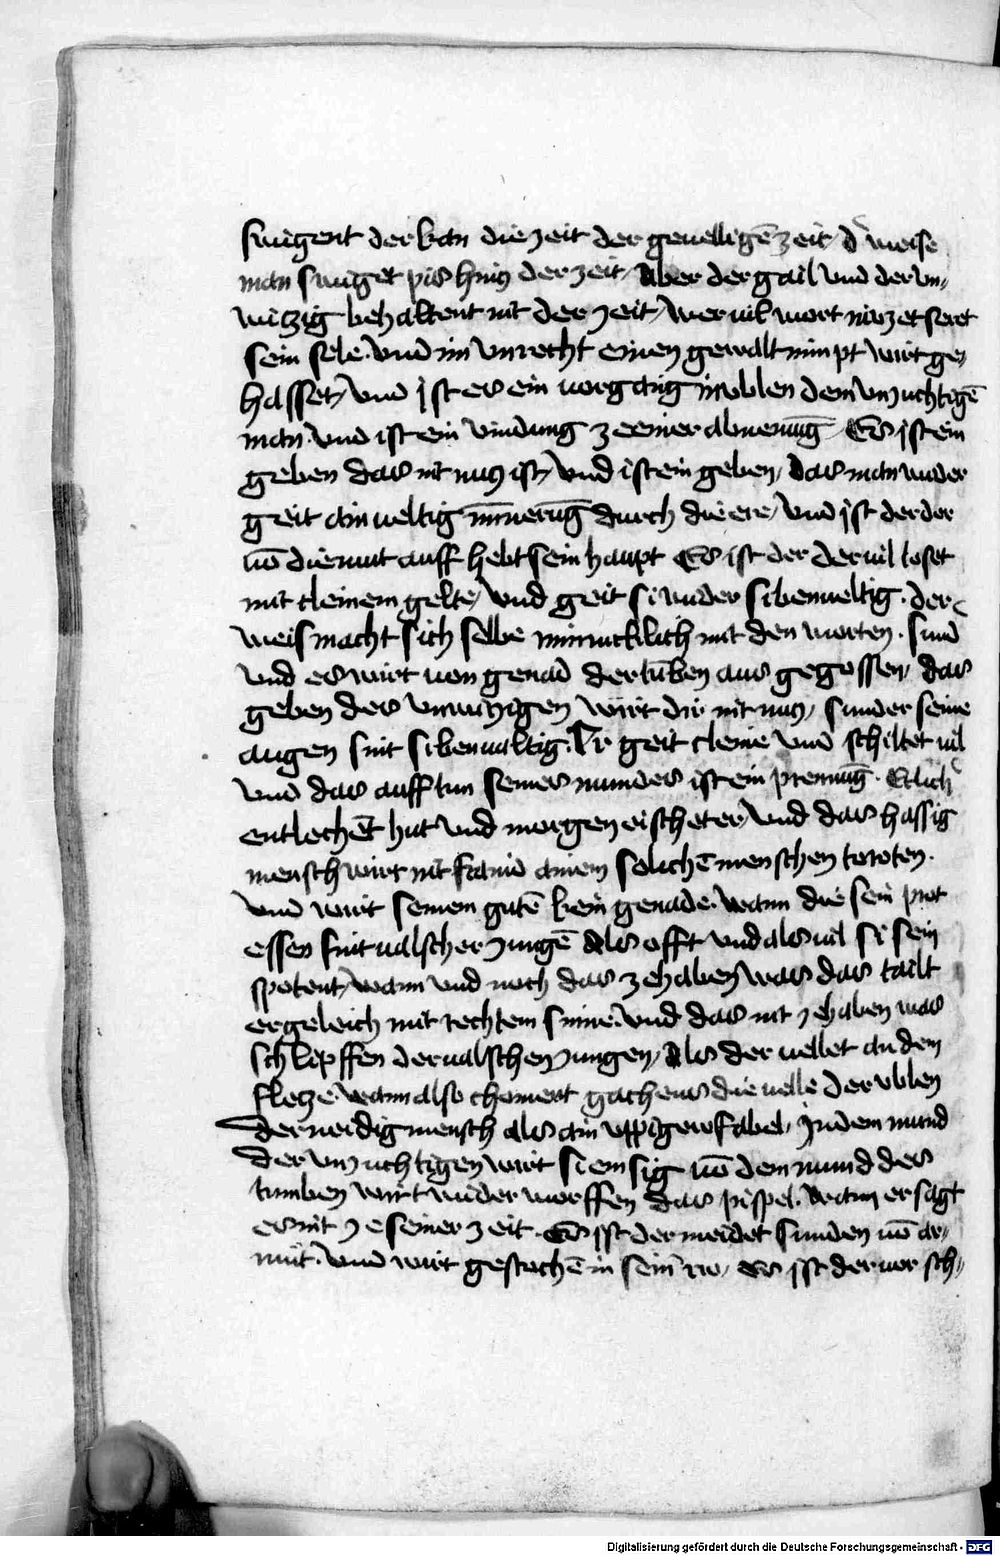 swigent der kan die zeit der geuelligē zeit / d weise
man swiget pis hincz der zeit / Aber der gail vnd der vn„
wiczig behaltent nit der zeit / wer uil wort nüczet seret
sein sele · vnd im vnrecht einen gewalt nimpt wirt ge„
hasset / vnd jst es ein uorgang in vblen dem vnzuchtigē
man · vnd ist ein vindung ze einer abnemūg · Es jst ein
geben das nit nucz ist / vnd ist ein geben / das man wider
geit ainueltig minnerūg durch die ere / vnd jst der der
uō diemut auff hebt sein haupt Es ist der der uil loset
mit cleinem gelte / vnd geit si wider sibenueltig · der
weis macht sich selbe minnicklich mit den worten · sund
vnd es wirt uon genad der tūben aus gegossen / das
geben des vnwiczigen wirt dir nit nucz / sunder seine
augen sint sibenualtig · Er geit cleine vnd schiltet uil
vnd das aufftun seines mundes ist ein prennūg · Etlich
entlechēt hut vnd morgen eischet er / vnd das hassig
mensch wirt nit fraind ainem solichē menschen toroten ·
vnd wirt seinem gutē kein genade · wann die sein prot
essen sint ualscher zungē Als offt vnd als uil si sein
spotent / wann vnd noch das ze haben was das tailt
er geleich mit rechtem sinne · vnd das nit ze haben was
schlipffen der ualschen zungen / Als der uellet an dem
flecze · wann also choment gachens die uelle der vblen
der neidig mensch als ain vppigew fabel / Jn dem mund
der vnzuchtigen wirt si emsig uō dem mund des
tumben wirt wider worffen das pispel · wann er sagt
es nit ze seiner zeit · Es jst der meidet sunden uō ar„
mut · vnd wirt gestochē in sein rw / Es jst der uor sch„
Digitalisierung gefördert durch die Deutsche Forschungsgemeinschaft - DFG